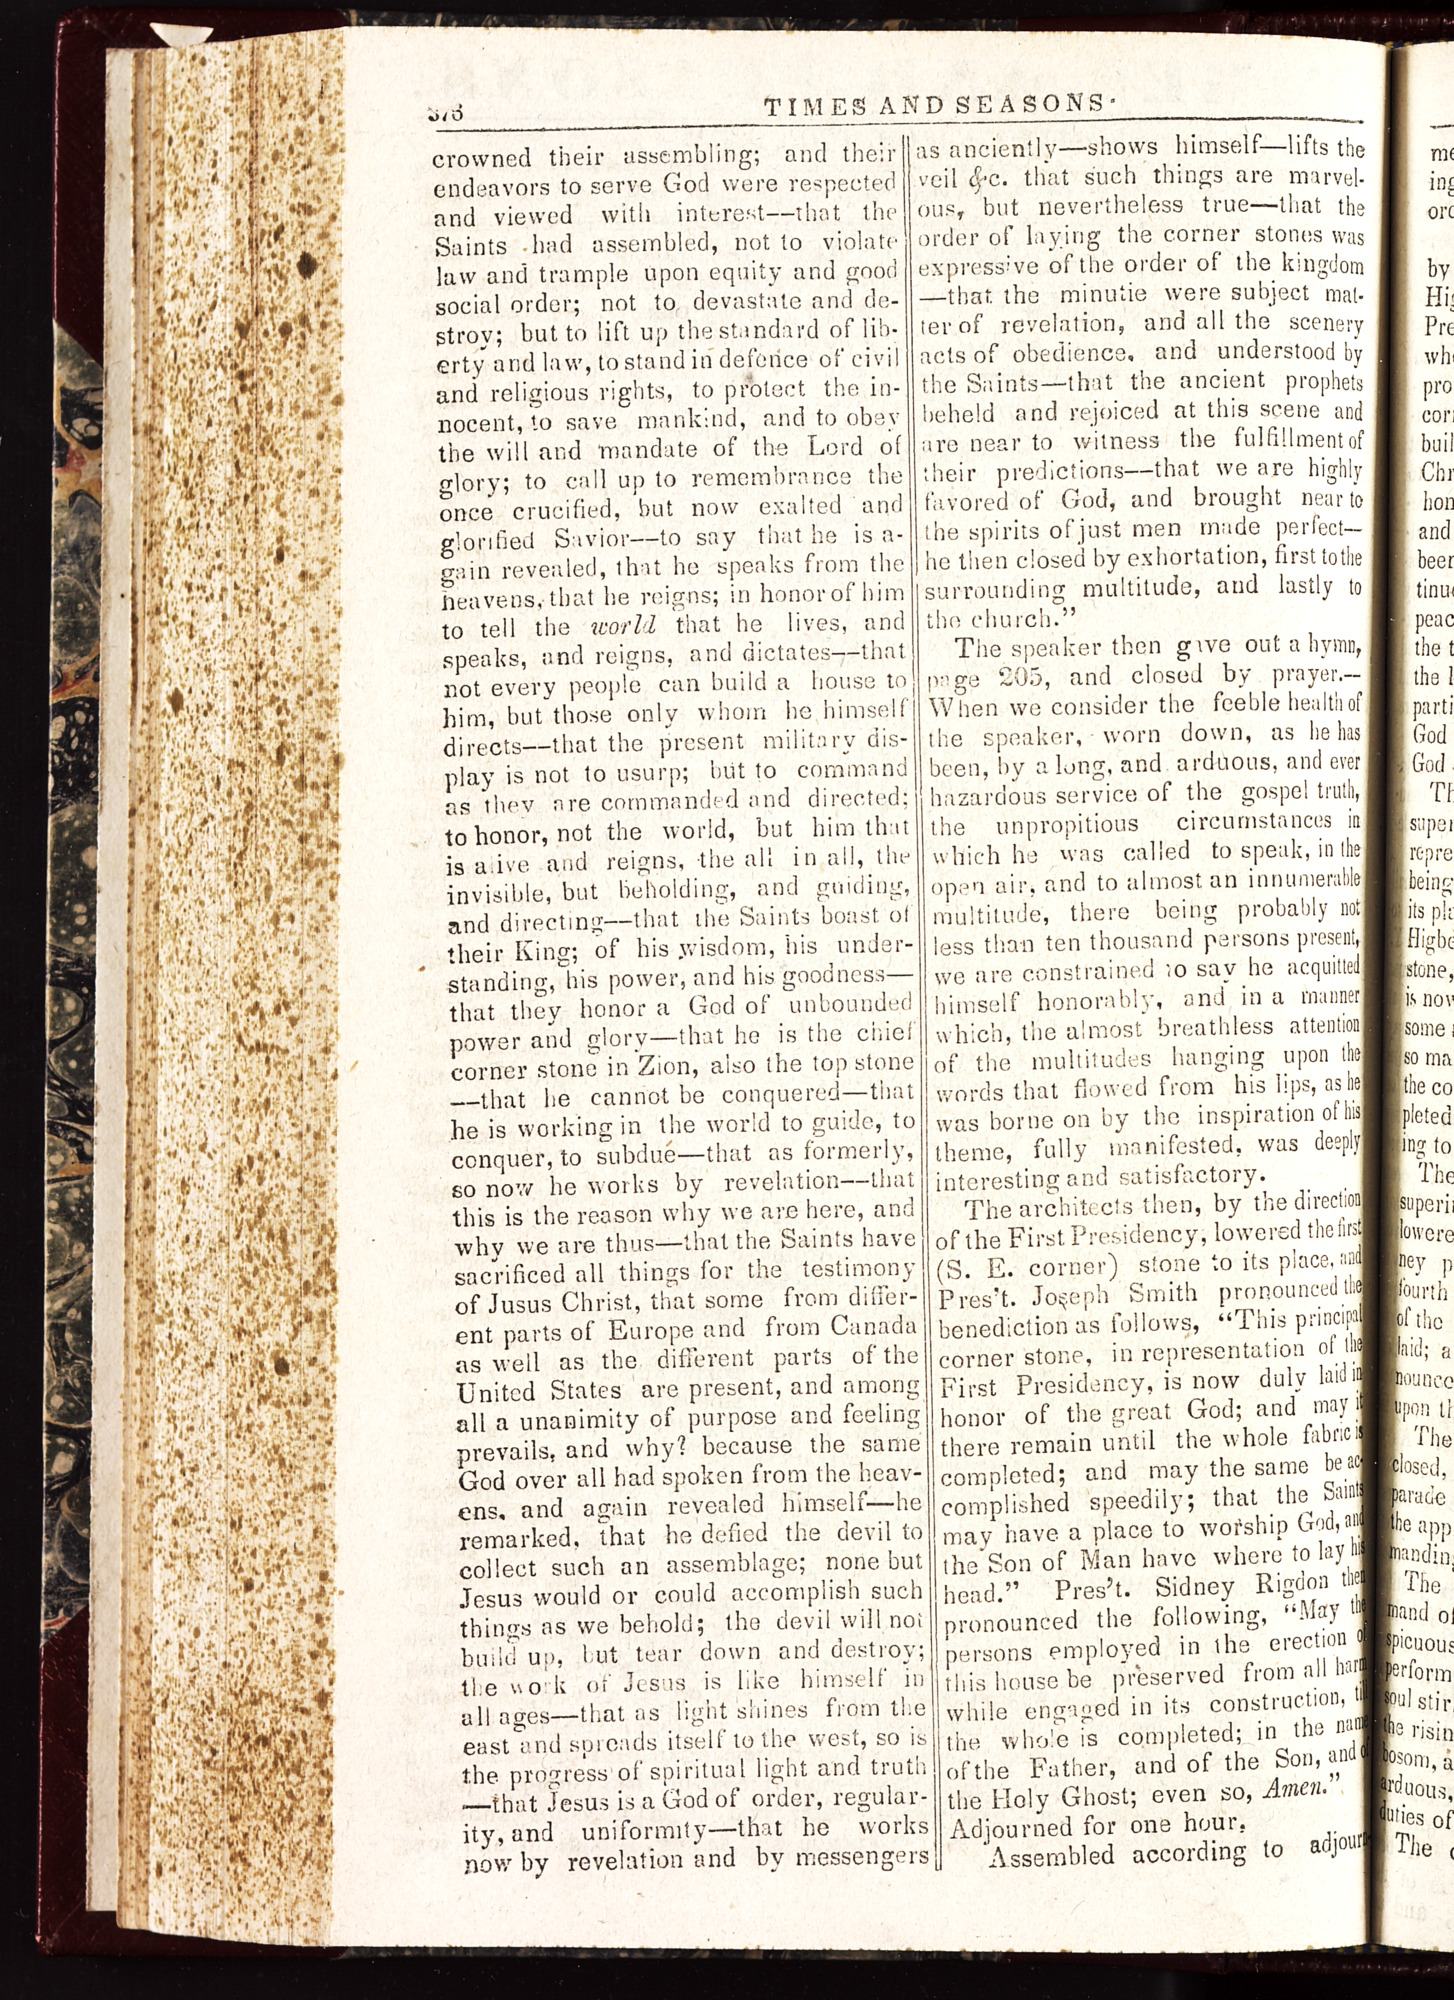 376
TIMES AND SEASONS.
crowned their assembling; and their
endeavors to serve God were respected
and viewed with interest--that the
Saints had assembled, not to violate
law and trample upon equity and good
social order; not to devastate and de-
stroy; but to lift up the standard of lib-
erty and law, to stand in defence of civil
and religious rights, to protect the in-
nocent, to save mankind, and to obey
the will and mandate of the Lord of
glory; to call up to remembrance the
once crucified, but now exalted and
glorified Savior--to say that he is a-
gain revealed, that he speaks from the
heavens, that he reigns; in honor of him
to tell the world that he lives, and
speaks, and reigns, and dictates--that
not every people can build a house to
him, but those only whom he himself
directs--that the present military dis-
play is not to usurp; but to command
as they are commanded and directed;
to honor, not the world, but him that
is alive and reigns, the all in all, the
invisible, but beholding, and guiding,
and directing--that the Saints boast of
their King; of his wisdom, his under-
standing, his power, and his goodness—
that they honor a God of unbounded
power and glory—that he is the chief
corner stone in Zion, also the top stone
—that he cannot be conquered—that
he is working in the world to guide, to
conquer, to subdue—that as formerly,
so now he works by revelation--that
this is the reason why we are here, and
why we are thus—that the Saints have
sacrificed all things for the testimony
of Jusus Christ, that some from differ-
ent parts of Europe and from Canada
as well as the different parts of the
United States are present, and among
all a unanimity of purpose and feeling
prevails, and why? because the same
God over all had spoken from the heav-
ens, and again revealed himself—he
remarked, that he defied the devil to
collect such an assemblage; none but
Jesus would or could accomplish such
things as we behold; the devil will not
build up, but tear down and destroy;
the work of Jesus is like himself in
all ages—that as light shines from the
east and spreads itself to the west, so is
the progress of spiritual light and truth
—that Jesus is a God of order, regular-
ity, and uniformity—that he works
now by revelation and by messengers
as anciently—shows himself—lifts the
veil &c. that such things are marvel-
ous, but nevertheless true—that the
order of laying the corner stones was
expressive of the order of the kingdom
—that the minutie were subject mat-
ter of revelation, and all the scenery
acts of obedience, and understood by
the Saints—that the ancient prophets
beheld and rejoiced at this scene and
are near to witness the fulfillment of
their predictions--that we are highly
favored of God, and brought near to
the spirits of just men made perfect—
he then closed by exhortation, first to the
surrounding multitude, and lastly to
the church."
The speaker then gave out a hymn,
page 205, and closed by prayer.—
When we consider the feeble health of
the speaker, worn down, as he has
been, by a long, and arduous, and ever
hazardous service of the gospel truth,
the unpropitious circumstances in
which he was called to speak, in the
open air, and to almost an innumerable
multitude, there being probably not
less than ten thousand persons present,
we are constrained to say he acquitted
himself honorably, and in a manner
which, the almost breathless attention
of the multitudes hanging upon the
words that flowed from his lips, as he
was borne on by the inspiration of his
theme, fully manifested, was deeply
interesting and satisfactory.
The architects then, by the direction
of the First Presidency, lowered the first
(S. E. corner) stone to its place, and
Pres't. Joseph Smith pronounced the
benediction as follows, "This principal
corner stone, in representation of the
First Presidency, is now duly laid in
honor of the great God; and may it
there remain until the whole fabric is
completed; and may the same be ac-
complished speedily; that the Saints
may have a place to worship God, and
the Son of Man have where to lay his
head." Pres't. Sidney Rigdon then
pronounced the following, "May the
persons employed in the erection of
this house be preserved from all harm
while engaged in its construction, till
the whole is completed; in the name
of the Father, and of the Son, and of
the Holy Ghost; even so, Amen."
Adjourned for one hour.
Assembled according to adjourn-